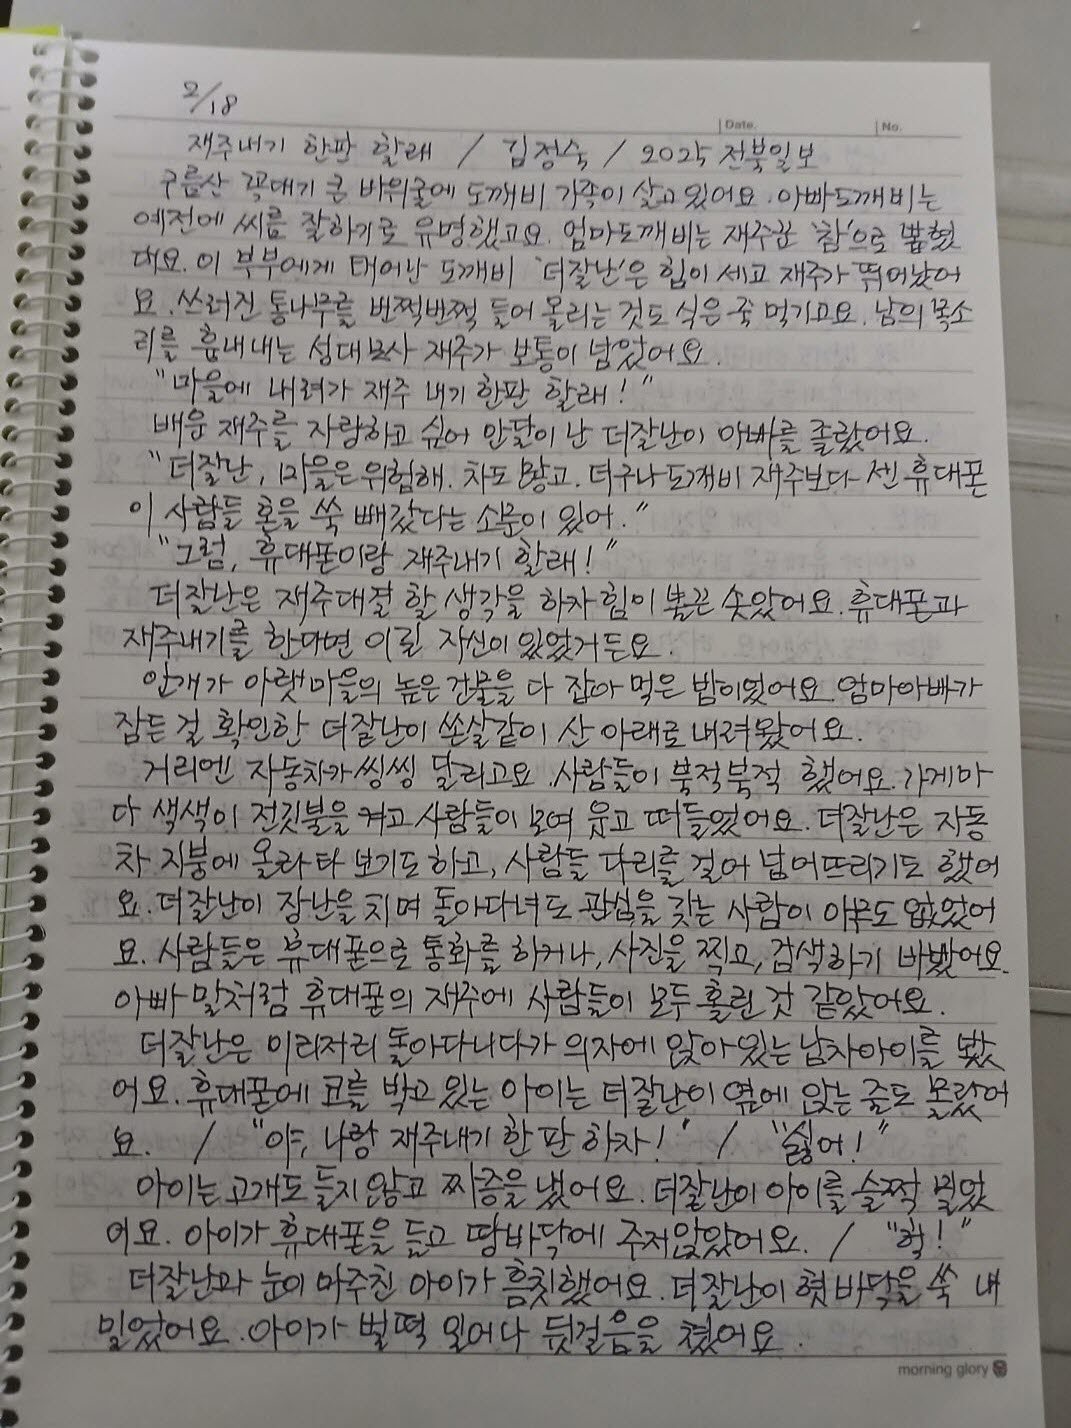 2/18
Date.
No.
재주내기 한판 할래 / 김정숙 / 2025 전북일보
구름산 꼭대기 큰 바위굴에 도깨비 가족이 살고 있어요. 아빠도깨비는
예전에 씨름 잘하기로 유명했고요. 엄마도깨비는 재주꾼 '참'으로 뽑혔
대요. 이 부부에게 태어난 도깨비 '더잘난'은 힘이 세고 재주가 뛰어났어
요. 쓰러진 통나무를 번쩍번쩍 들어 올리는 것도 식은 죽 먹기고요. 남의 목소
리를 흉내내는 성대모사 재주가 보통이 넘었어요.
"마을에 내려가 재주 내기 한판 할래!"
배운 재주를 자랑하고 싶어 안달이 난 더잘난이 아빠를 졸랐어요.
"더잘난, 마을은 위험해. 차도 많고. 더구나 도깨비 재주보다 센 휴대폰
이 사람들 혼을 쏙 빼갔다는 소문이 있어."
"그럼, 휴대폰이랑 재주내기 할래!"
더잘난은 재주대결 할 생각을 하자 힘이 불끈 솟았어요. 휴대폰과
재주내기를 한대면 이길 자신이 있었거든요.
안개가 아랫마을의 높은 건물을 다 잡아 먹은 밤이었어요. 엄마아빠가
잠든 걸 확인한 더잘난이 쏜살같이 산 아래로 내려왔어요.
거리엔 자동차가 씽씽 달리고요. 사람들이 북적북적 했어요. 가게마
다 색색이 전깃불을 켜고 사람들이 모여 웃고 떠들었어요. 더잘난은 자동
차 지붕에 올라타 보기도 하고, 사람들 다리를 걸어 넘어뜨리기도 했어
요. 더잘난이 장난을 치며 돌아다녀도 관심을 갖는 사람이 아무도 없었어
요. 사람들은 휴대폰으로 통화를 하거나, 사진을 찍고, 검색하기 바빴어요.
아빠 말처럼 휴대폰의 재주에 사람들이 모두 홀린 것 같았어요.
더잘난은 이리저리 돌아다니다가 의자에 앉아 있는 남자아이를 봤
어요. 휴대폰에 코를 박고 있는 아이는 더잘난이 옆에 앉는 줄도 몰랐어
요. / "야, 나랑 재주내기 한 판 하자!" / "싫어!"
아이는 고개도 들지 않고 짜증을 냈어요. 더잘난이 아이를 슬쩍 밀었
어요. 아이가 휴대폰을 들고 땅바닥에 주저앉았어요. / "헉!"
더잘난과 눈이 마주친 아이가 흠칫했어요. 더잘난이 혓바닥을 쑥 내
밀었어요. 아이가 벌떡 일어나 뒷걸음을 쳤어요.
morning glory